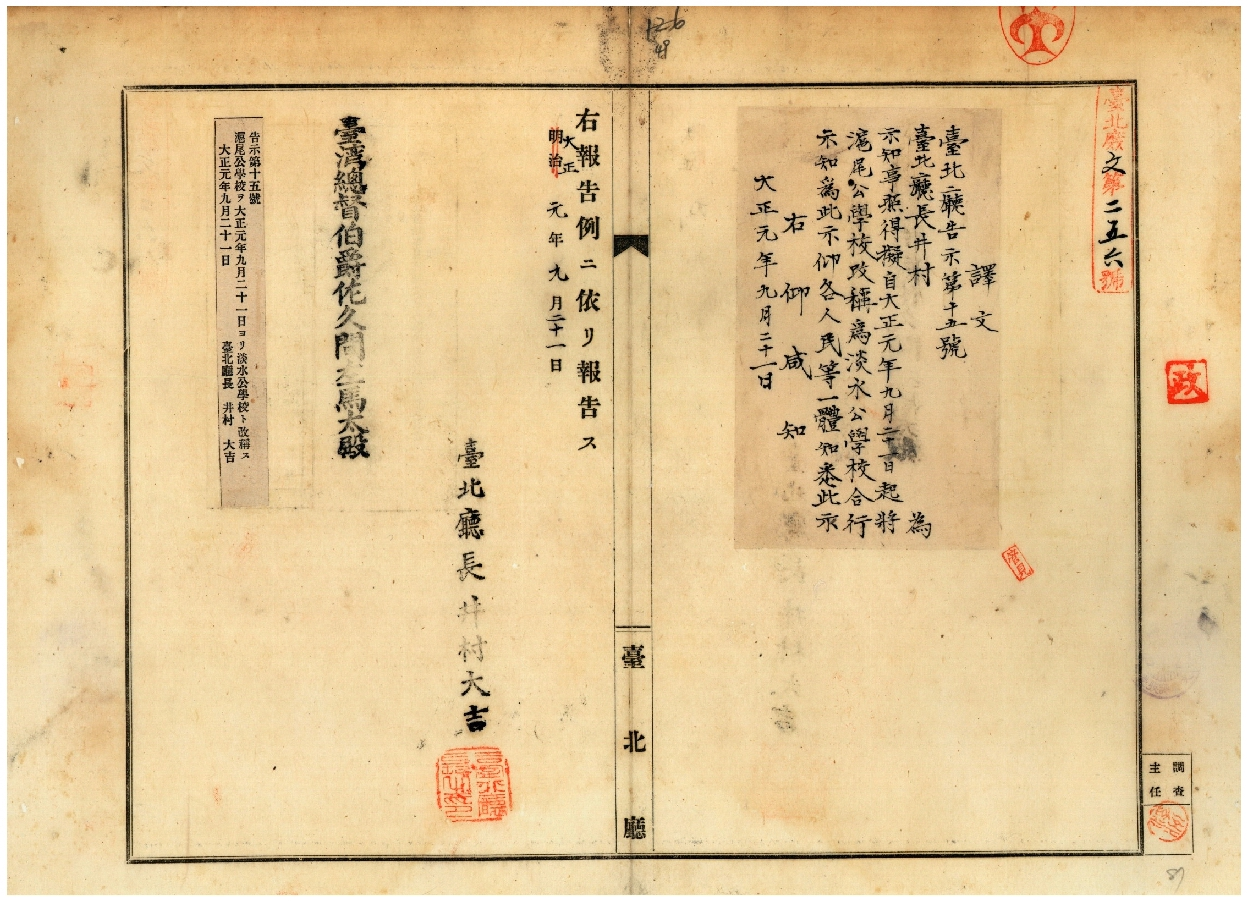 臺北廳文第二五六號
政
譯文
臺北廳告示第十五號
臺北廳長井村 為
示知事照得擬自大正元年九月二十一日起將
滬尾公學校改稱為淡水公學校合行
示知為此示仰各人民等一體知悉此示
右仰咸知
大正元年九月二十一日
調查
主任
臺北廳
右報告例ニ依リ報告ス
大正
明治
元年九月二十一日
臺北廳長井村大吉
臺灣總督伯爵佐久間左馬太殿
告示第十五號
滬尾公學校ヲ大正元年九月二十一日ヨリ淡水公學校ト改稱ス
大正元年九月二十一日 臺北廳長 井村 大吉